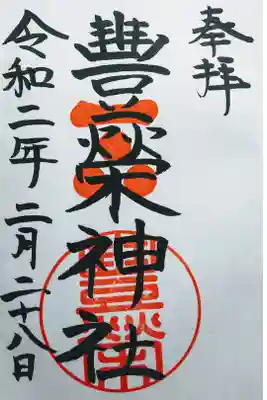 奉拝
豊榮神社
令和二年二月二十八日